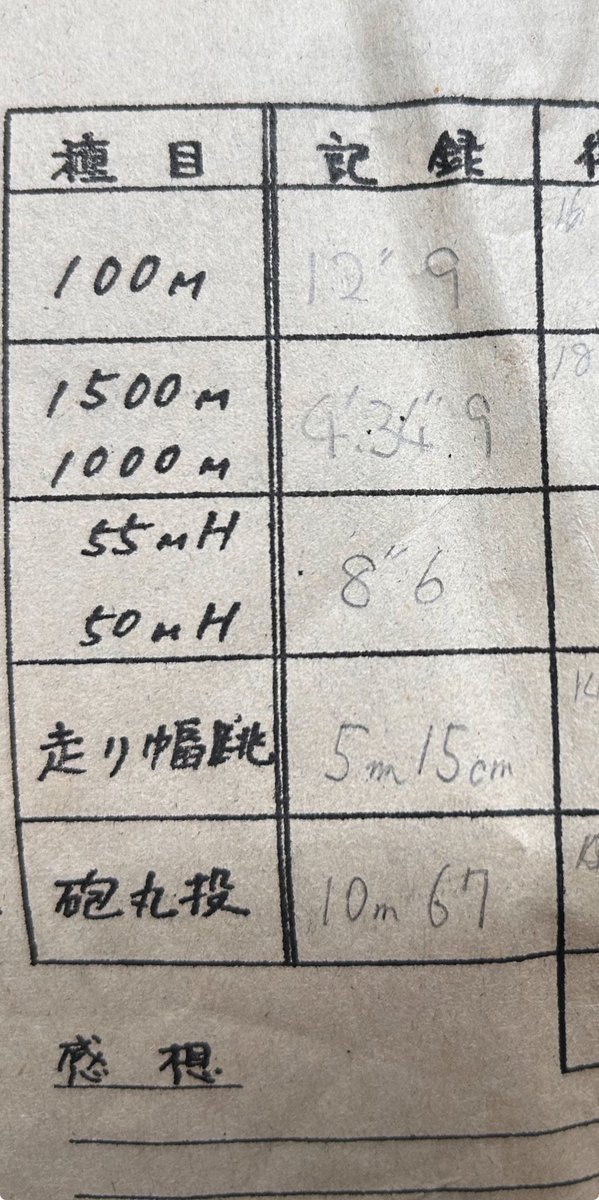 種目 記録
100m 12"9 16
1500m
1000m 4'34"9 18
55mH
50mH 8"6
走り幅跳 5m15cm 14
砲丸投 10m67
感想